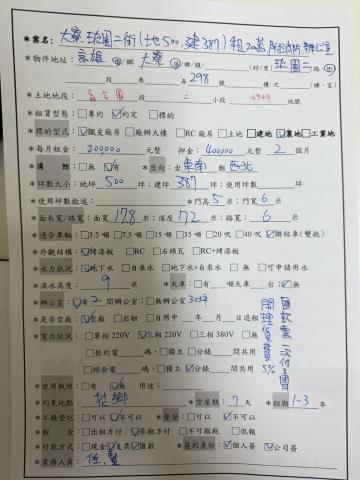 *案名: 大寮琉園二街(地500,建387)租20萬,附消防,辦公室
*物件地址: 高雄 市/鄉 大寮 鄉/鎮 (村/里) 琉園二 路/街
段 巷 弄 298 號 樓之 (棟、室)
*土地地段: 段 二 小段 4949 地號
*租賃型態: □專約 ☑約定 □標的
*標的型式: ☑鐵皮廠房 □廠辦大樓 □RC廠房 □土地 □建地 ☑農地 □工業地
*每月租金: 200000 元整 押金: 400000 元整 2 個月
*消防: □無 ☑有 *座向: 坐 東南 朝 西北
*坪數大小: 地坪 500 坪; 建坪 387 坪; 使用坪數 坪
*使用坪數敘述: *門高 5 米; 門寬 6 米
*面長寬/路寬: 面寬 178 米; 深度 72 米; 路寬: 6 米
*適合車輛: □3.5噸 □7.5噸 □15噸 □35噸 □20呎 □40呎 ☑聯結車(雙拖)
*外觀結構: ☑烤漆板 □RC □石綿瓦 □RC+烤漆板
*水力狀況: ☑地下水 □自來水 □地下水+自來水 □無 □可申請用水
*滴水高度: 9 米 *天車: □有 噸天車 台; ☑無
*辦公室: ☑有 2 間辦公室; □無辦公室 30坪
*是否空廠: ☑空廠 □自租 □自用中 年 月 日退租
*電力狀況: □單相220V ☑三相220V □三相380V □無
□契約電 碼; □獨立 □分錶 間共用
□綜合電 碼; □獨立 ☑分錶 間共用
開理貨費5%
匯款票一次付清
*使用執照: □有 ☑無 用途:
*約見地點: *空星期: 7 天 *租期 1-3 年
*工廠登記: □可以 ☑不可以 *營登: □可以 ☑不可以
*稅金: □出租方付 ☑承租方付 □不可報稅 □低報
*付款方式: □現金 ☑支票 □匯款 *簽約身份: ☑個人簽 ☑公司簽
*業務人員: